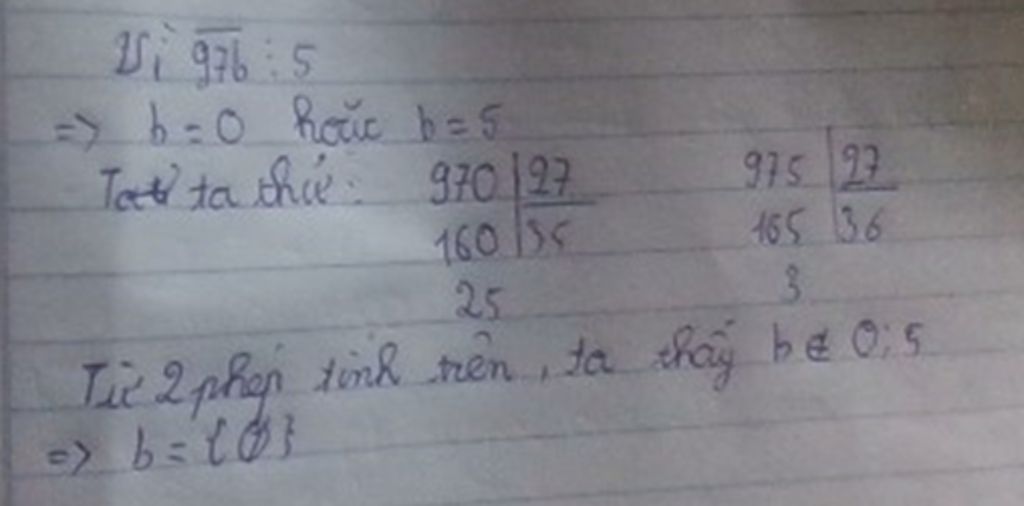 Vì 97b ⋮ 5
=> b = 0 hoặc b = 5
ta thử: 970 | 27 975 | 27
160 | 35 165 | 36
25 3
Từ 2 phép tính trên, ta thấy b ∉ 0; 5
=> b = {∅}